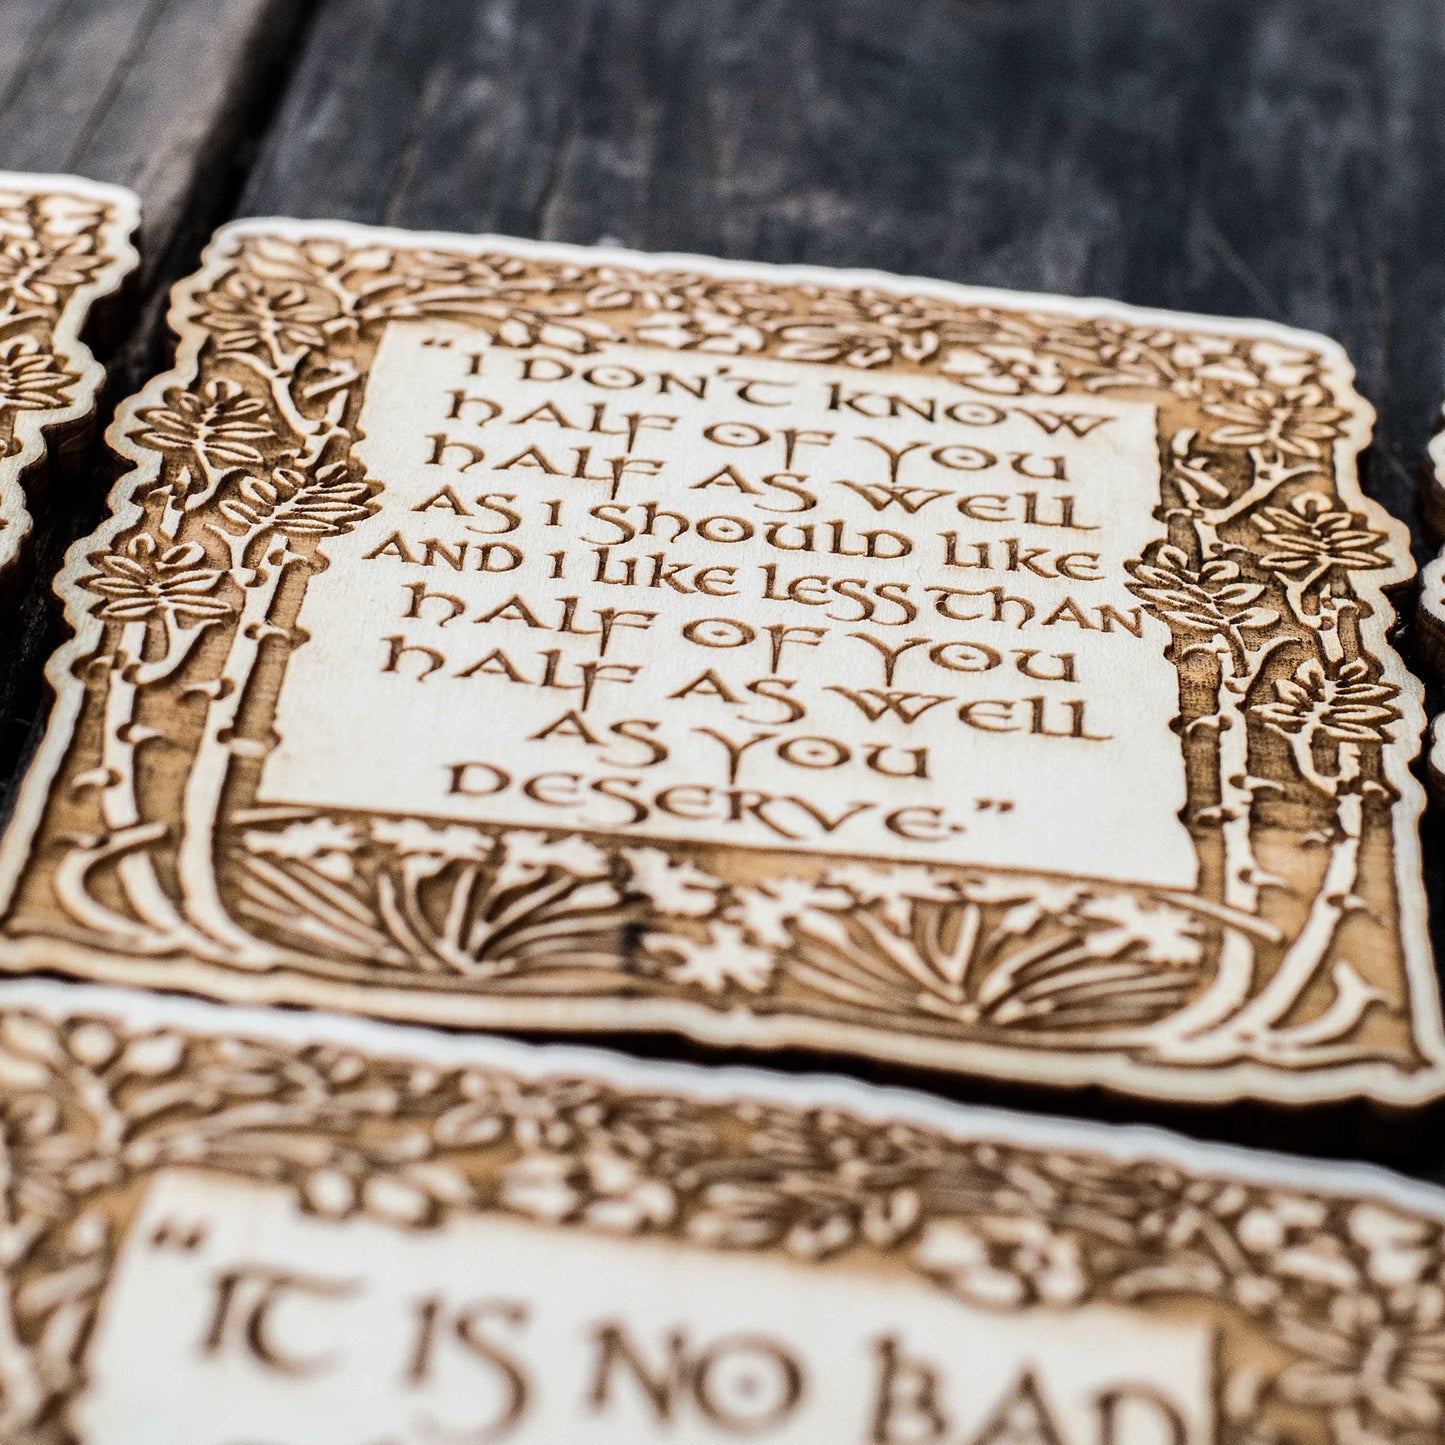 “I DON'T KNOW
HALF OF YOU
HALF AS WELL
AS I SHOULD LIKE
AND I LIKE LESS THAN
HALF OF YOU
HALF AS WELL
AS YOU
DESERVE.”
“IT IS NO BAD